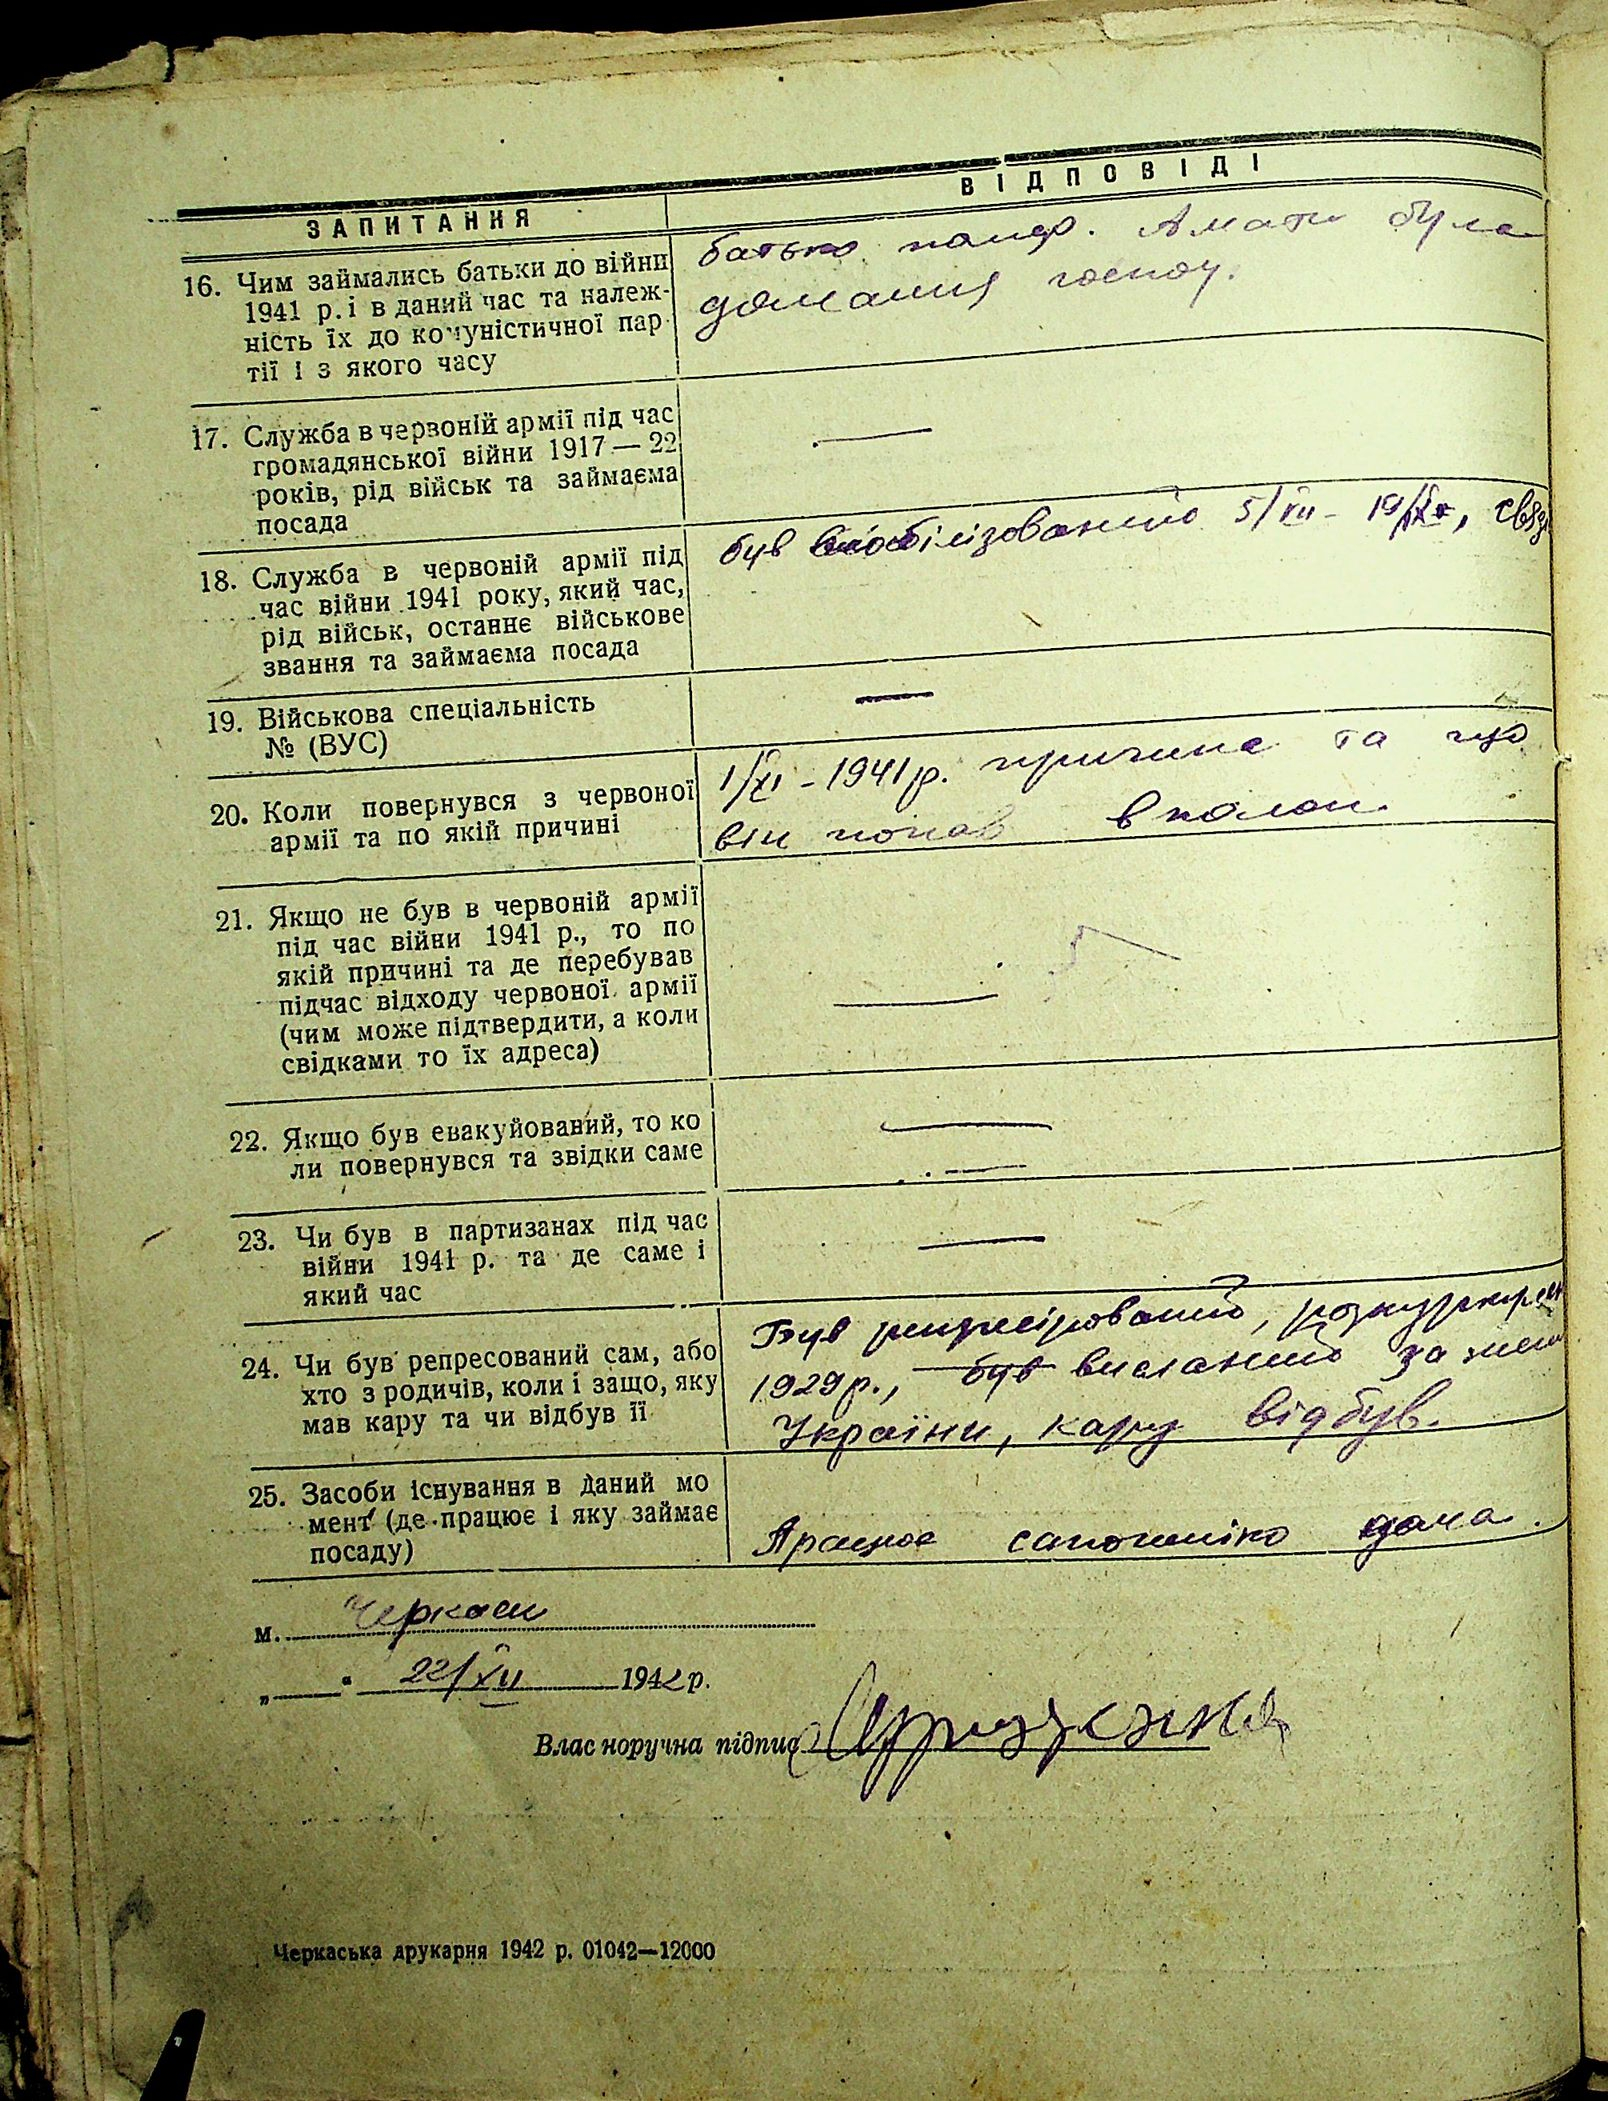 ЗАПИТАННЯ
ВІДПОВІДІ
16. Чим займались батьки до війни
1941 р. і в даний час та належ-
ність їх до комуністичної пар-
тії і з якого часу
батько помер. А мати була
домашня господ.
17. Служба в червоній армії під час
громадянської війни 1917 — 22
років, рід військ та займаєма
посада
—
18. Служба в червоній армії під
час війни 1941 року, який час,
рід військ, останнє військове
звання та займаєма посада
був мобілізований 5/VII - 19/IX,
19. Військова спеціальність
№ (ВУС)
—
20. Коли повернувся з червоної
армії та по якій причині
1/XI - 1941 р. причина та що
він попав в полон.
21. Якщо не був в червоній армії
під час війни 1941 р., то по
якій причині та де перебував
підчас відходу червоної армії
(чим може підтвердити, а коли
свідками то їх адреса)
—
22. Якщо був евакуйований, то ко
ли повернувся та звідки саме
—
23. Чи був в партизанах під час
війни 1941 р. та де саме і
який час
—
24. Чи був репресований сам, або
хто з родичів, коли і защо, яку
мав кару та чи відбув її
Був репресірований,
1929 р., був висланий за межі
України, кару відбув.
25. Засоби існування в даний мо
мент (де працює і яку займає
посаду)
Працює сапожніко дома.
м. Черкаси
„ “ 22/XII 1942 р.
Власноручна підпис
Черкаська друкарня 1942 р. 01042—12000